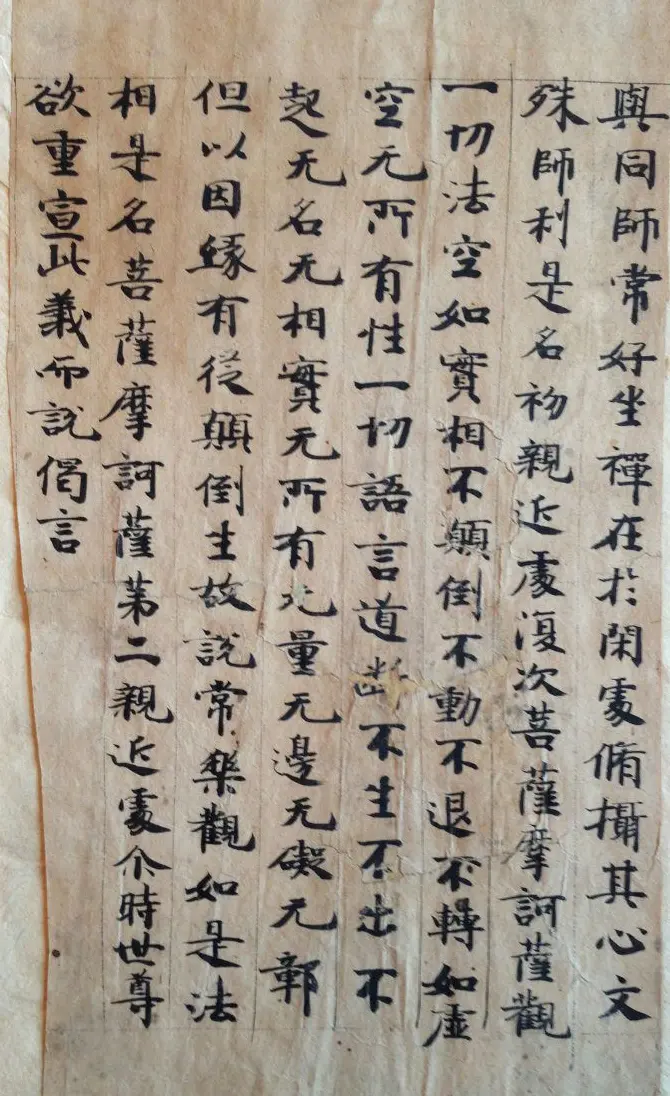 與同師常好坐禪在於閑處脩攝其心文
殊師利是名初親近處復次菩薩摩訶薩觀
一切法空如實相不顛倒不動不退不轉如虛
空无所有性一切語言道断不生不出不
起无名无相實无所有无量无邊无礙无鄣
但以因緣有從顛倒生故說常樂觀如是法
相是名菩薩摩訶薩苐二親近處尒時世尊
欲重宣此義而說偈言